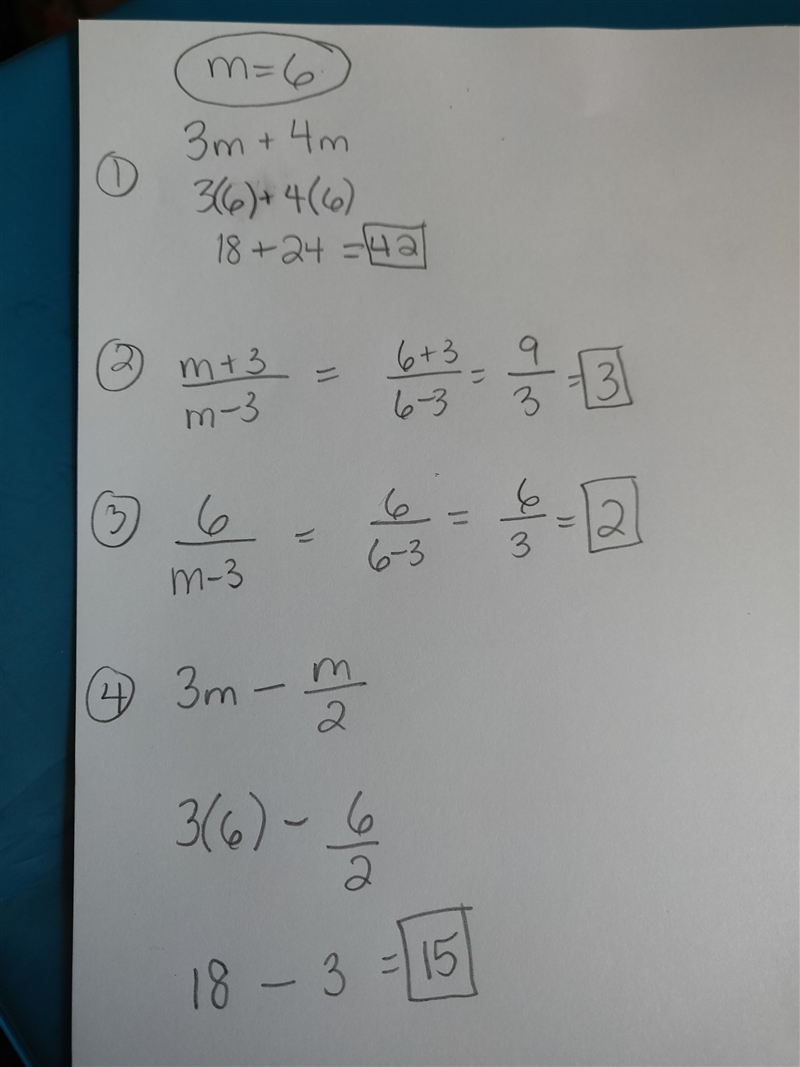 m=6
3m + 4m
① 3(6)+ 4(6)
18 + 24 = 42
② m+3/m-3 = 6+3/6-3 = 9/3 = 3
③ 6/m-3 = 6/6-3 = 6/3 = 2
④ 3m - m/2
3(6) - 6/2
18 - 3 = 15